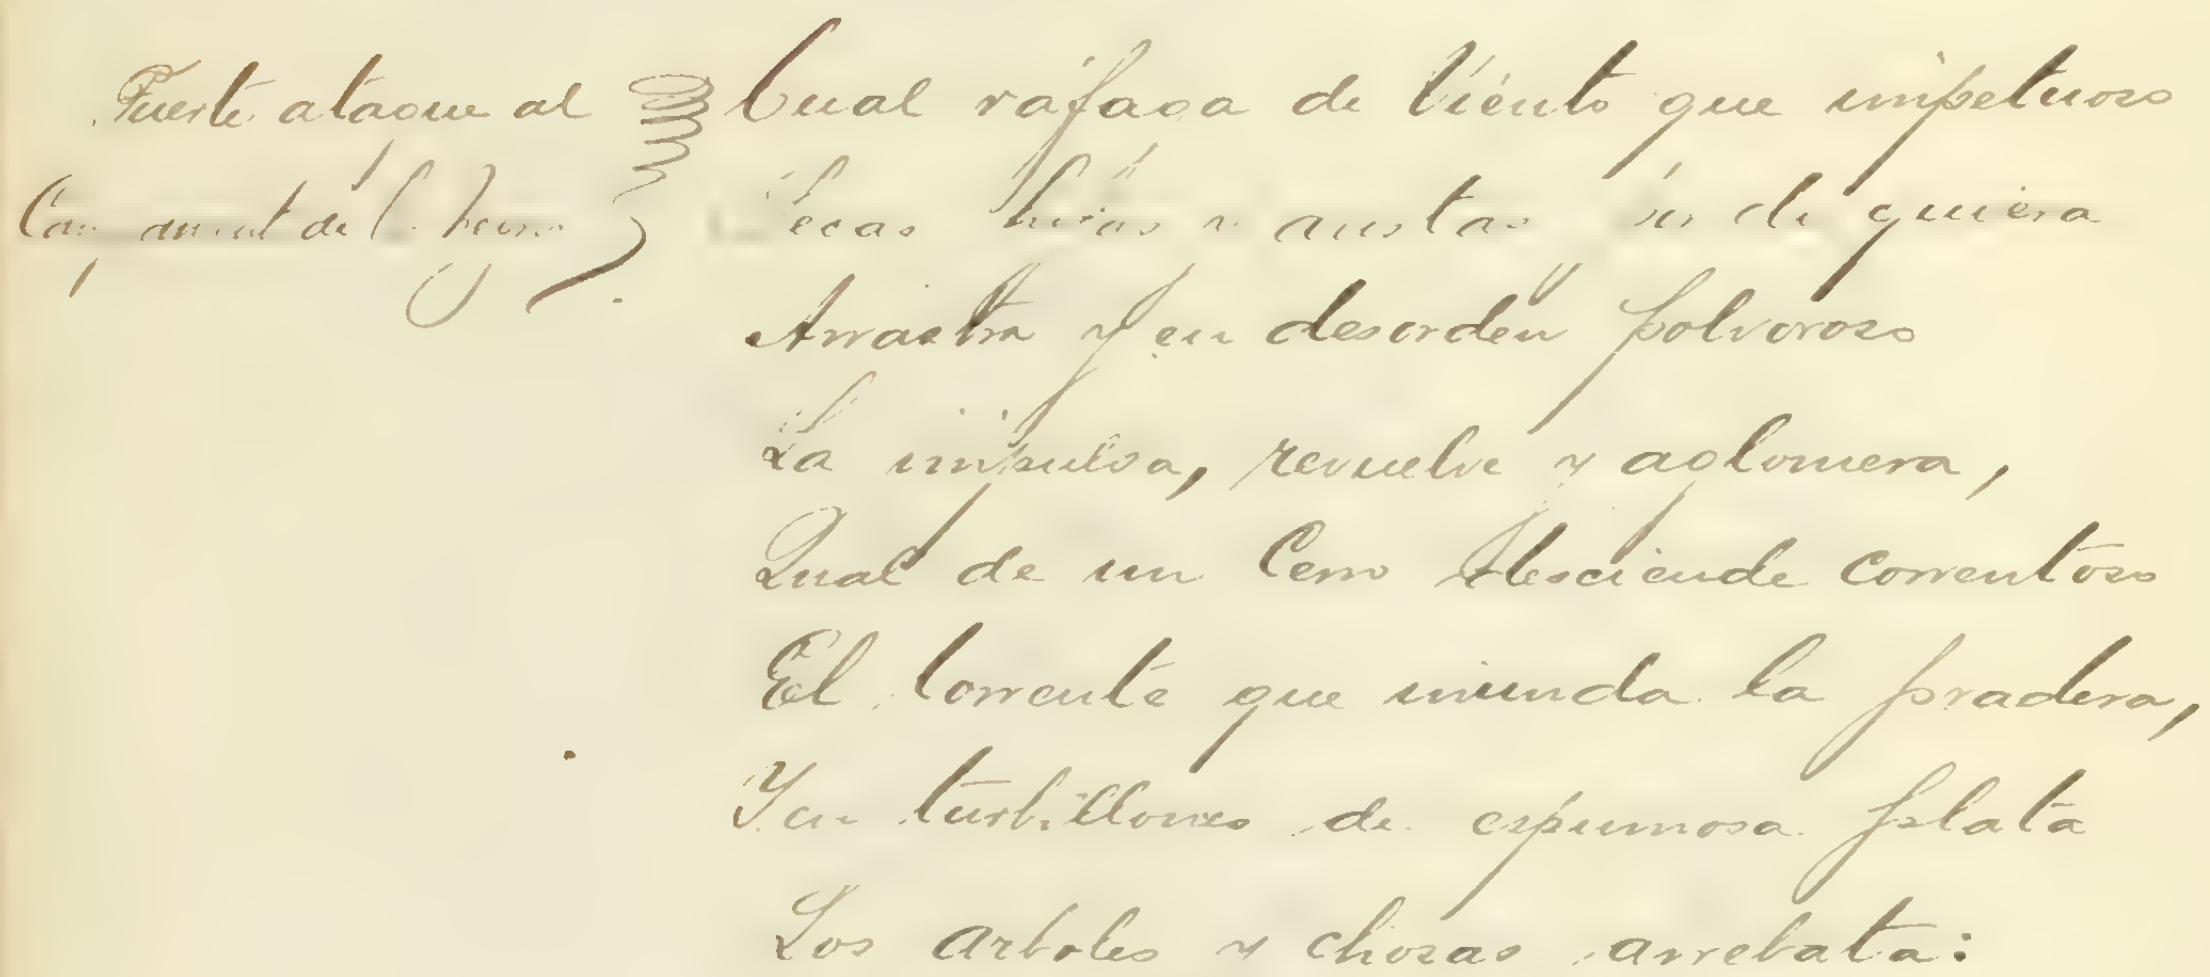 Fuerte ataque al
de
Cual ráfaga de Viento que impetuoso
Secas hojas y aristas por do quiera
Arrastra y en desorden polvoroso
La impulsa, revuelve y aglomera,
Qual de un Cerro desciende correntoso
El torrente que inunda la pradera,
Y en turbillones de espumosa plata
Los arboles y chozas arrebata: